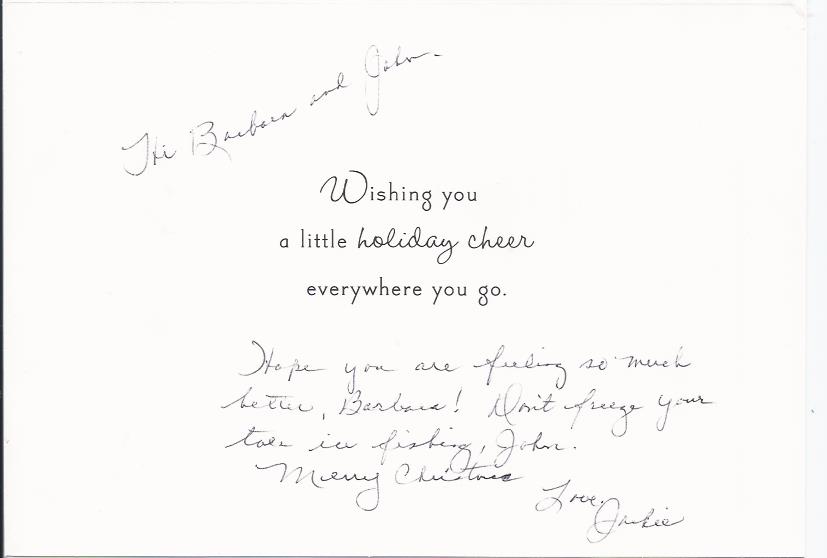 Hi Barbara and John -
Wishing you
a little holiday cheer
everywhere you go.
Hope you are feeling so much
better, Barbara! Don't freeze your
toes ice fishing, John.
Merry Christmas
Love,
Jackie